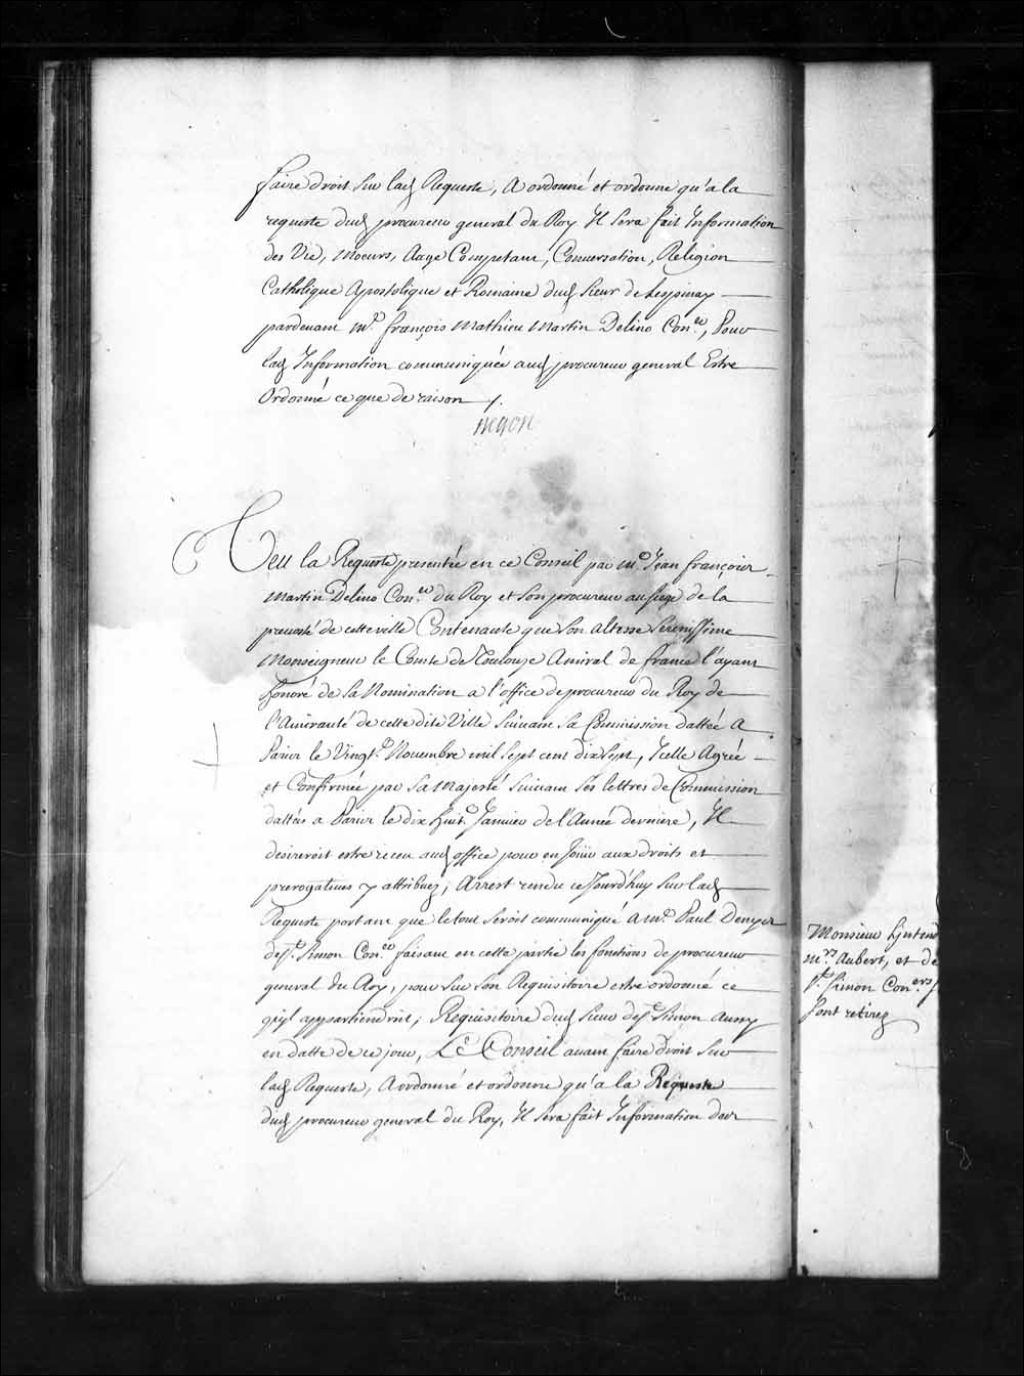 faire droit sur lad Requeste, A ordonné et ordonne qu'a la
requeste dud procureur general du Roy Il sera fait Information
des Vie, Moeurs, Aage Competant, Conversation, Religion
Catholique Apostolique et Romaine dud Sieur de Lespinay
pardevant Me françois Mathieu Martin Delino Coner, Pour
lad Information communiquée aud procureur general Estre
Ordonné ce que de raison /.
Begon
Veu la Requeste presentée en ce Conseil par Me Jean françois
Martin Delino Coner du Roy et Son procureur au siege de la
prevosté de cette ville Contenante que Son Altesse Serenissime
Monseigneur le Comte de Toulouze Amiral de france l'ayant
honoré de Sa Nomination a l'office de procureur du Roy de
l'Amirauté de cette dite Ville suivant Sa Commission dattée A
Paris le Vingte Novembre mil Sept cent dix sept, Icelle Agréée
et Confirmée par Sa Majesté suivant Ses lettres de Commission
dattées a Paris le dix huite Janvier de l'Année derniere, Il
desireroit estre receu aud office pour en Joüir aux droits et
prerogatives y attribuez; Arrest rendu ce Jourdhuy sur lad
Requeste portant que le tout seroit communiqué a Mr Paul Denys
de St Simon Coner faisant en cette partie les fonctions de procureur
general du Roy, pour sur son Requisitoire estre ordonné ce
qu'il appartiendroit; Requisitoire dud Sieur de St Simon
en datte de ce jour, Le Conseil avant faire droit sur
lad Requeste, A ordonné et ordonne qu'a la Requeste
dud procureur general du Roy, Il sera fait Information des
Monsieur Lintend
Mrs Aubert, et de
St Simon Coners s
sont retirez